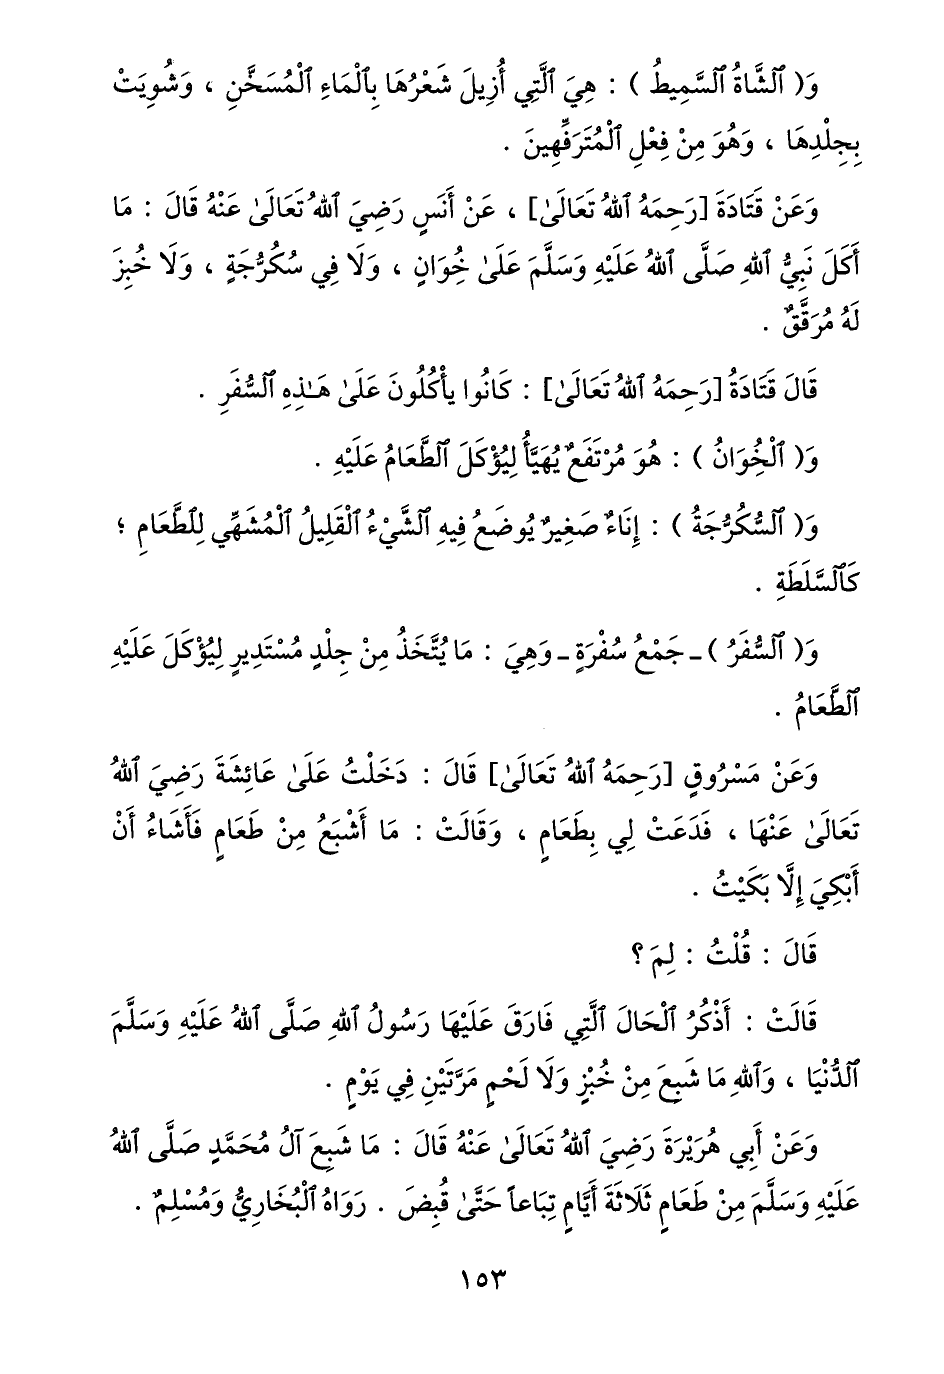 وَ( ٱلشَّاةُ ٱلسَّمِيطُ ) : هِيَ ٱلَّتِي أُزِيلَ شَعْرُهَا بِٱلْمَاءِ ٱلْمُسَخَّنِ ، وَشُوِيَتْ
بِجِلْدِهَا ، وَهُوَ مِنْ فِعْلِ ٱلْمُتَرَفِّهِينَ .
وَعَنْ قَتَادَةَ [رَحِمَهُ ٱللهُ تَعَالَىٰ] ، عَنْ أَنَسٍ رَضِيَ ٱللهُ تَعَالَىٰ عَنْهُ قَالَ : مَا
أَكَلَ نَبِيُّ ٱللهِ صَلَّى ٱللهُ عَلَيْهِ وَسَلَّمَ عَلَىٰ خُِوَانٍ ، وَلَا فِي سُكُرُّجَةٍ ، وَلَا خُبِزَ
لَهُ مُرَقَّقٌ .
قَالَ قَتَادَةُ [رَحِمَهُ ٱللهُ تَعَالَىٰ] : كَانُوا يأْكُلُونَ عَلَىٰ هَـٰذِهِ ٱلسُّفَرِ .
وَ( ٱلْخُِوَانُ ) : هُوَ مُرْتَفَعٌ يُهَيَّأُ لِيُؤْكَلَ ٱلطَّعَامُ عَلَيْهِ .
وَ( ٱلسُّكُرُّجَةُ ) : إِنَاءٌ صَغِيرٌ يُوضَعُ فِيهِ ٱلشَّيْءُ ٱلْقَلِيلُ ٱلْمُشَهِّي لِلطَّعَامِ ؛
كَٱلسَّلَطَةِ .
وَ( ٱلسُّفَرُ ) ـ جَمْعُ سُفْرَةٍ ـ وَهِيَ : مَا يُتَّخَذُ مِنْ جِلْدٍ مُسْتَدِيرٍ لِيُؤْكَلَ عَلَيْهِ
ٱلطَّعَامُ .
وَعَنْ مَسْرُوقٍ [رَحِمَهُ ٱللهُ تَعَالَىٰ] قَالَ : دَخَلْتُ عَلَىٰ عَائِشَةَ رَضِيَ ٱللهُ
تَعَالَىٰ عَنْهَا ، فَدَعَتْ لِي بِطَعَامٍ ، وَقَالَتْ : مَا أَشْبَعُ مِنْ طَعَامٍ فَأَشَاءُ أَنْ
أَبْكِيَ إِلَّا بَكَيْتُ .
قَالَ : قُلْتُ : لِمَ ؟
قَالَتْ : أَذْكُرُ ٱلْحَالَ ٱلَّتِي فَارَقَ عَلَيْهَا رَسُولُ ٱللهِ صَلَّى ٱللهُ عَلَيْهِ وَسَلَّمَ
ٱلدُّنْيَا ، وَٱللهِ مَا شَبِعَ مِنْ خُبْزٍ وَلَا لَحْمٍ مَرَّتَيْنِ فِي يَوْمٍ .
وَعَنْ أَبِي هُرَيْرَةَ رَضِيَ ٱللهُ تَعَالَىٰ عَنْهُ قَالَ : مَا شَبِعَ آلُ مُحَمَّدٍ صَلَّى ٱللهُ
عَلَيْهِ وَسَلَّمَ مِنْ طَعَامٍ ثَلَاثَةَ أَيَّامٍ تِبَاعاً حَتَّىٰ قُبِضَ . رَوَاهُ ٱلْبُخَارِيُّ وَمُسْلِمٌ .
١٥٣